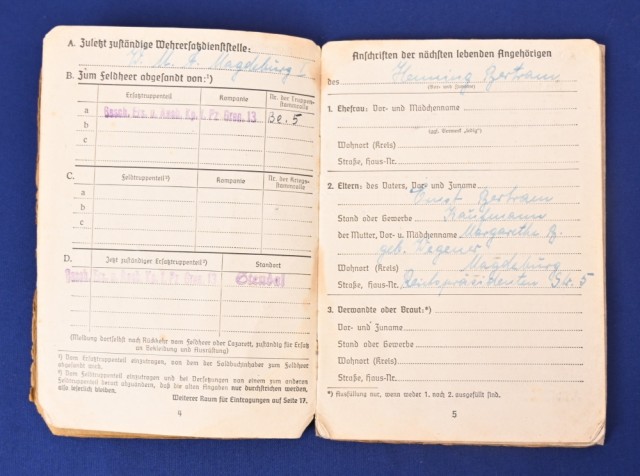 A. Zuletzt zuständige Wehrersatzdienststelle:
W. M. A. Magdeburg I
B. Zum Feldheer abgesandt von:¹)
Ersatztruppenteil Kompanie Nr. der Truppen-stammrolle
a Besch. Ers. u. Ausb. Kp. f. Pz Gren. 13 Be. 5
b
c
C. Feldtruppenteil²) Kompanie Nr. der Kriegs-stammrolle
a
b
c
D. Jetzt zuständiger Ersatztruppenteil²) Standort
Besch. Ers. u. Ausb. Kp. f. Pz Gren. 13 Stendal
(Meldung dortselbst nach Rückkehr vom Feldheer oder Lazarett, zuständig für Ersatz
an Bekleidung und Ausrüstung)
¹) Vom Ersatztruppenteil einzutragen, von dem der Soldbuchinhaber zum Feldheer
abgesandt wird.
²) Vom Feldtruppenteil einzutragen und bei Versetzungen von einem zum anderen
Feldtruppenteil derart abzuändern, daß die alten Angaben nur durchstrichen werden,
also leserlich bleiben.
Weiterer Raum für Eintragungen auf Seite 17.
4
Anschriften der nächsten lebenden Angehörigen
des Henning Bertram
(Vor- und Zuname)
1. Ehefrau: Vor- und Mädchenname
(ggf. Vermerk „ledig")
Wohnort (Kreis)
Straße, Haus-Nr.
2. Eltern: des Vaters, Vor- und Zuname
Ernst Bertram
Stand oder Gewerbe Kaufmann
der Mutter, Vor- u. Mädchenname Margarethe B.
geb. Wegener
Wohnort (Kreis) Magdeburg
Straße, Haus-Nr. Reichspräsidenten Str. 5
3. Verwandte oder Braut:*)
Vor- und Zuname
Stand oder Gewerbe
Wohnort (Kreis)
Straße, Haus-Nr.
*) Ausfüllung nur, wenn weder 1. noch 2. ausgefüllt sind.
5